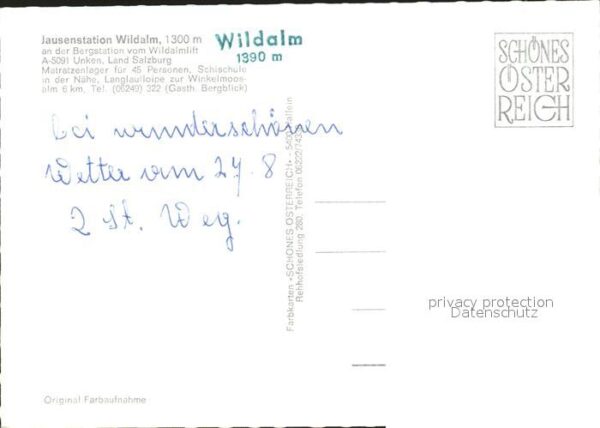 Jausenstation Wildalm, 1300 m
an der Bergstation vom Wildalmlift
A-5091 Unken, Land Salzburg
Matratzenlager für 45 Personen, Schischule
in der Nähe, Langlaufloipe zur Winkelmoos-
alm 6 km, Tel. (06249) 322 (Gasth. Bergblick)
Wildalm
1390 m
SCHÖNES
ÖSTER
REICH
bei wunderschönen
Wetter vom 27.8
2 St. Weg.
Farbkarten »SCHÖNES ÖSTERREICH« - 5400 Hallein
Rehhofsiedlung 280, Telefon 06222/743
privacy protection
Datenschutz
Original Farbaufnahme